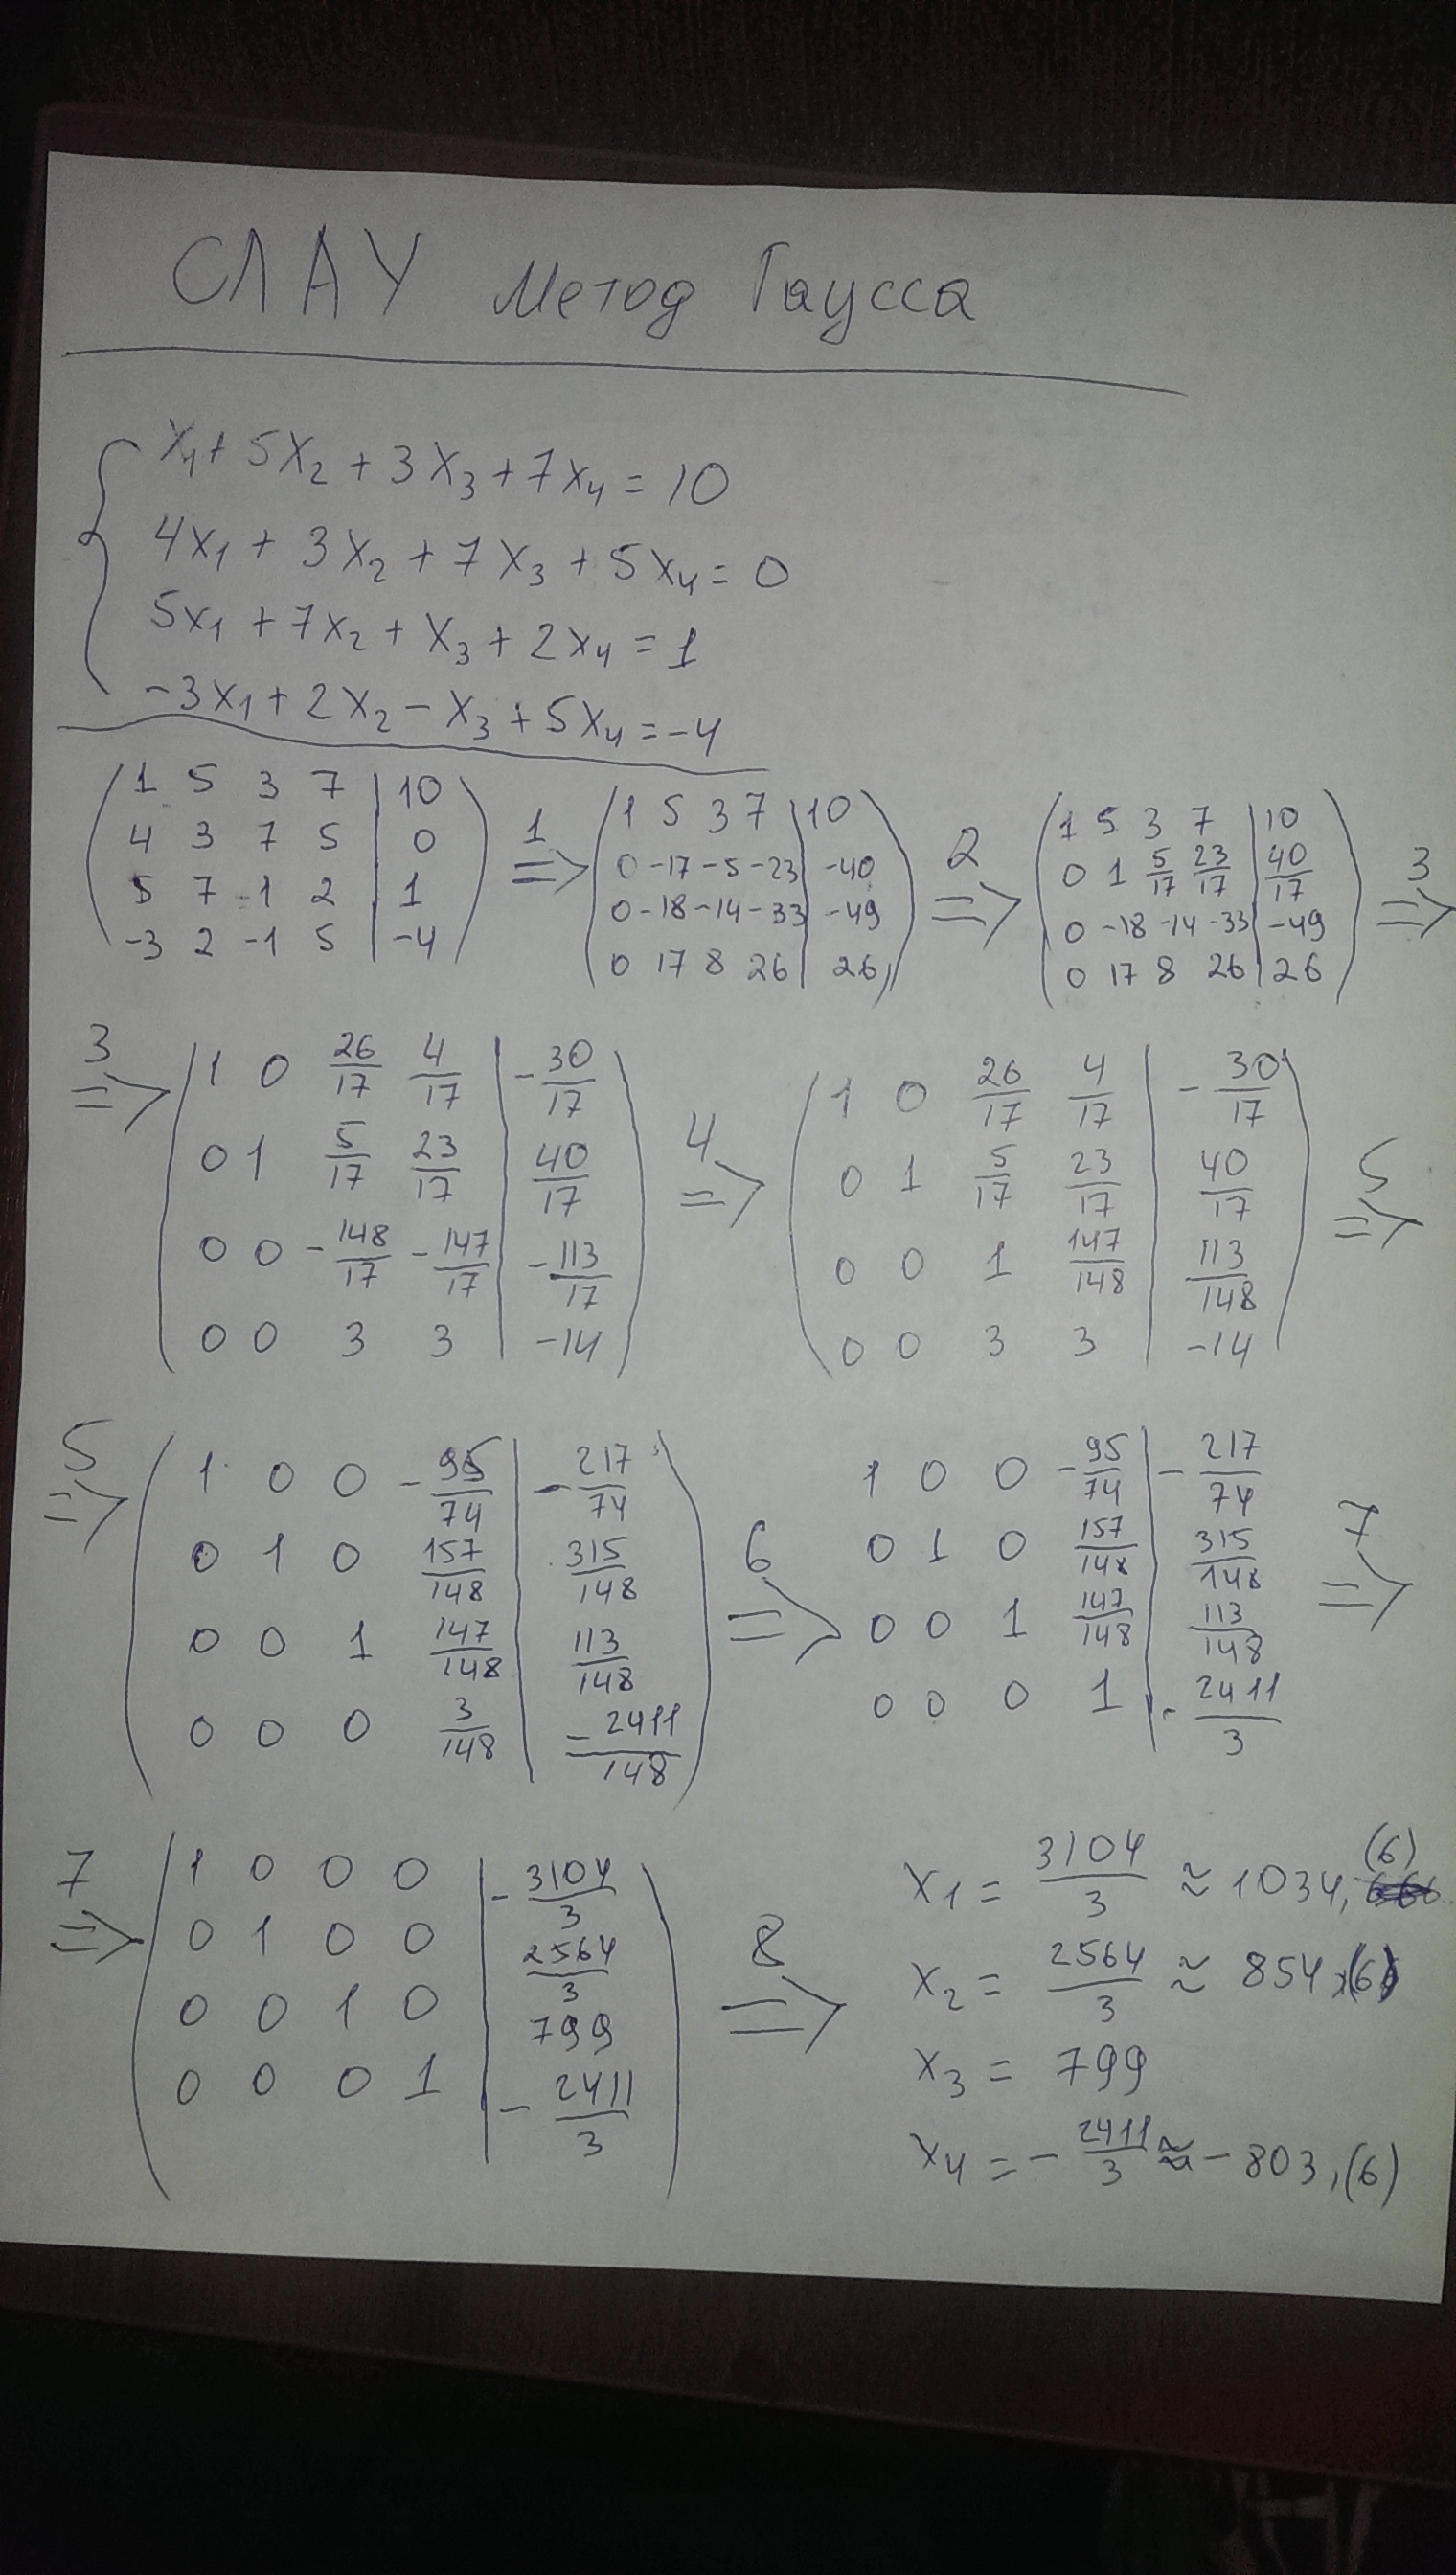 СЛАУ Метод Гаусса
x₁ + 5x₂ + 3x₃ + 7x₄ = 10
4x₁ + 3x₂ + 7x₃ + 5x₄ = 0
5x₁ + 7x₂ + x₃ + 2x₄ = 1
-3x₁ + 2x₂ - x₃ + 5x₄ = -4
1 5 3 7 | 10
4 3 7 5 | 0
5 7 1 2 | 1
-3 2 -1 5 | -4
1 =>
1 5 3 7 | 10
0 -17 -5 -23 | -40
0 -18 -14 -33 | -49
0 17 8 26 | 26
2 =>
1 5 3 7 | 10
0 1 5/17 23/17 | 40/17
0 -18 -14 -33 | -49
0 17 8 26 | 26
3 =>
3 =>
1 0 26/17 4/17 | -30/17
0 1 5/17 23/17 | 40/17
0 0 -148/17 -147/17 | -113/17
0 0 3 3 | -14
4 =>
1 0 26/17 4/17 | -30/17
0 1 5/17 23/17 | 40/17
0 0 1 147/148 | 113/148
0 0 3 3 | -14
5 =>
5 =>
1 0 0 -95/74 | -217/74
0 1 0 157/148 | 315/148
0 0 1 147/148 | 113/148
0 0 0 3/148 | -2411/148
6 =>
1 0 0 -95/74 | -217/74
0 1 0 157/148 | 315/148
0 0 1 147/148 | 113/148
0 0 0 1 | -2411/3
7 =>
7 =>
1 0 0 0 | -3104/3
0 1 0 0 | 2564/3
0 0 1 0 | 799
0 0 0 1 | -2411/3
8 =>
x₁ = 3104/3 ≈ 1034,(6)
x₂ = 2564/3 ≈ 854,(6)
x₃ = 799
x₄ = -2411/3 ≈ -803,(6)